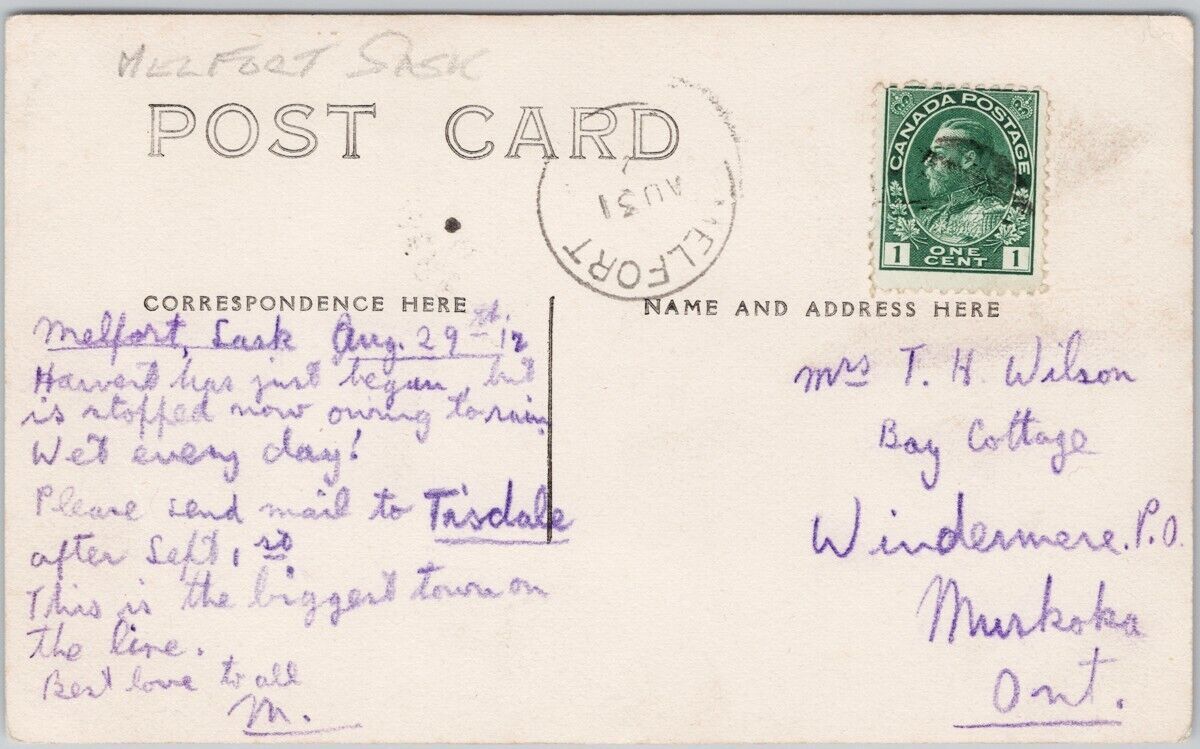 MELFORT SASK
POST CARD
CANADA POSTAGE
1 ONE CENT 1
MELFORT
AU 31
CORRESPONDENCE HERE
NAME AND ADDRESS HERE
Melfort, Sask Aug. 29th 12
Harvest has just began, but
is stopped now owing to rain
Wet every day!
Please send mail to Tisdale
after Sept, 1st
This is the biggest town on
the line.
Best love to all
M.
Mrs T. H. Wilson
Bay Cottage
Windermere. P.O.
Muskoka
Ont.